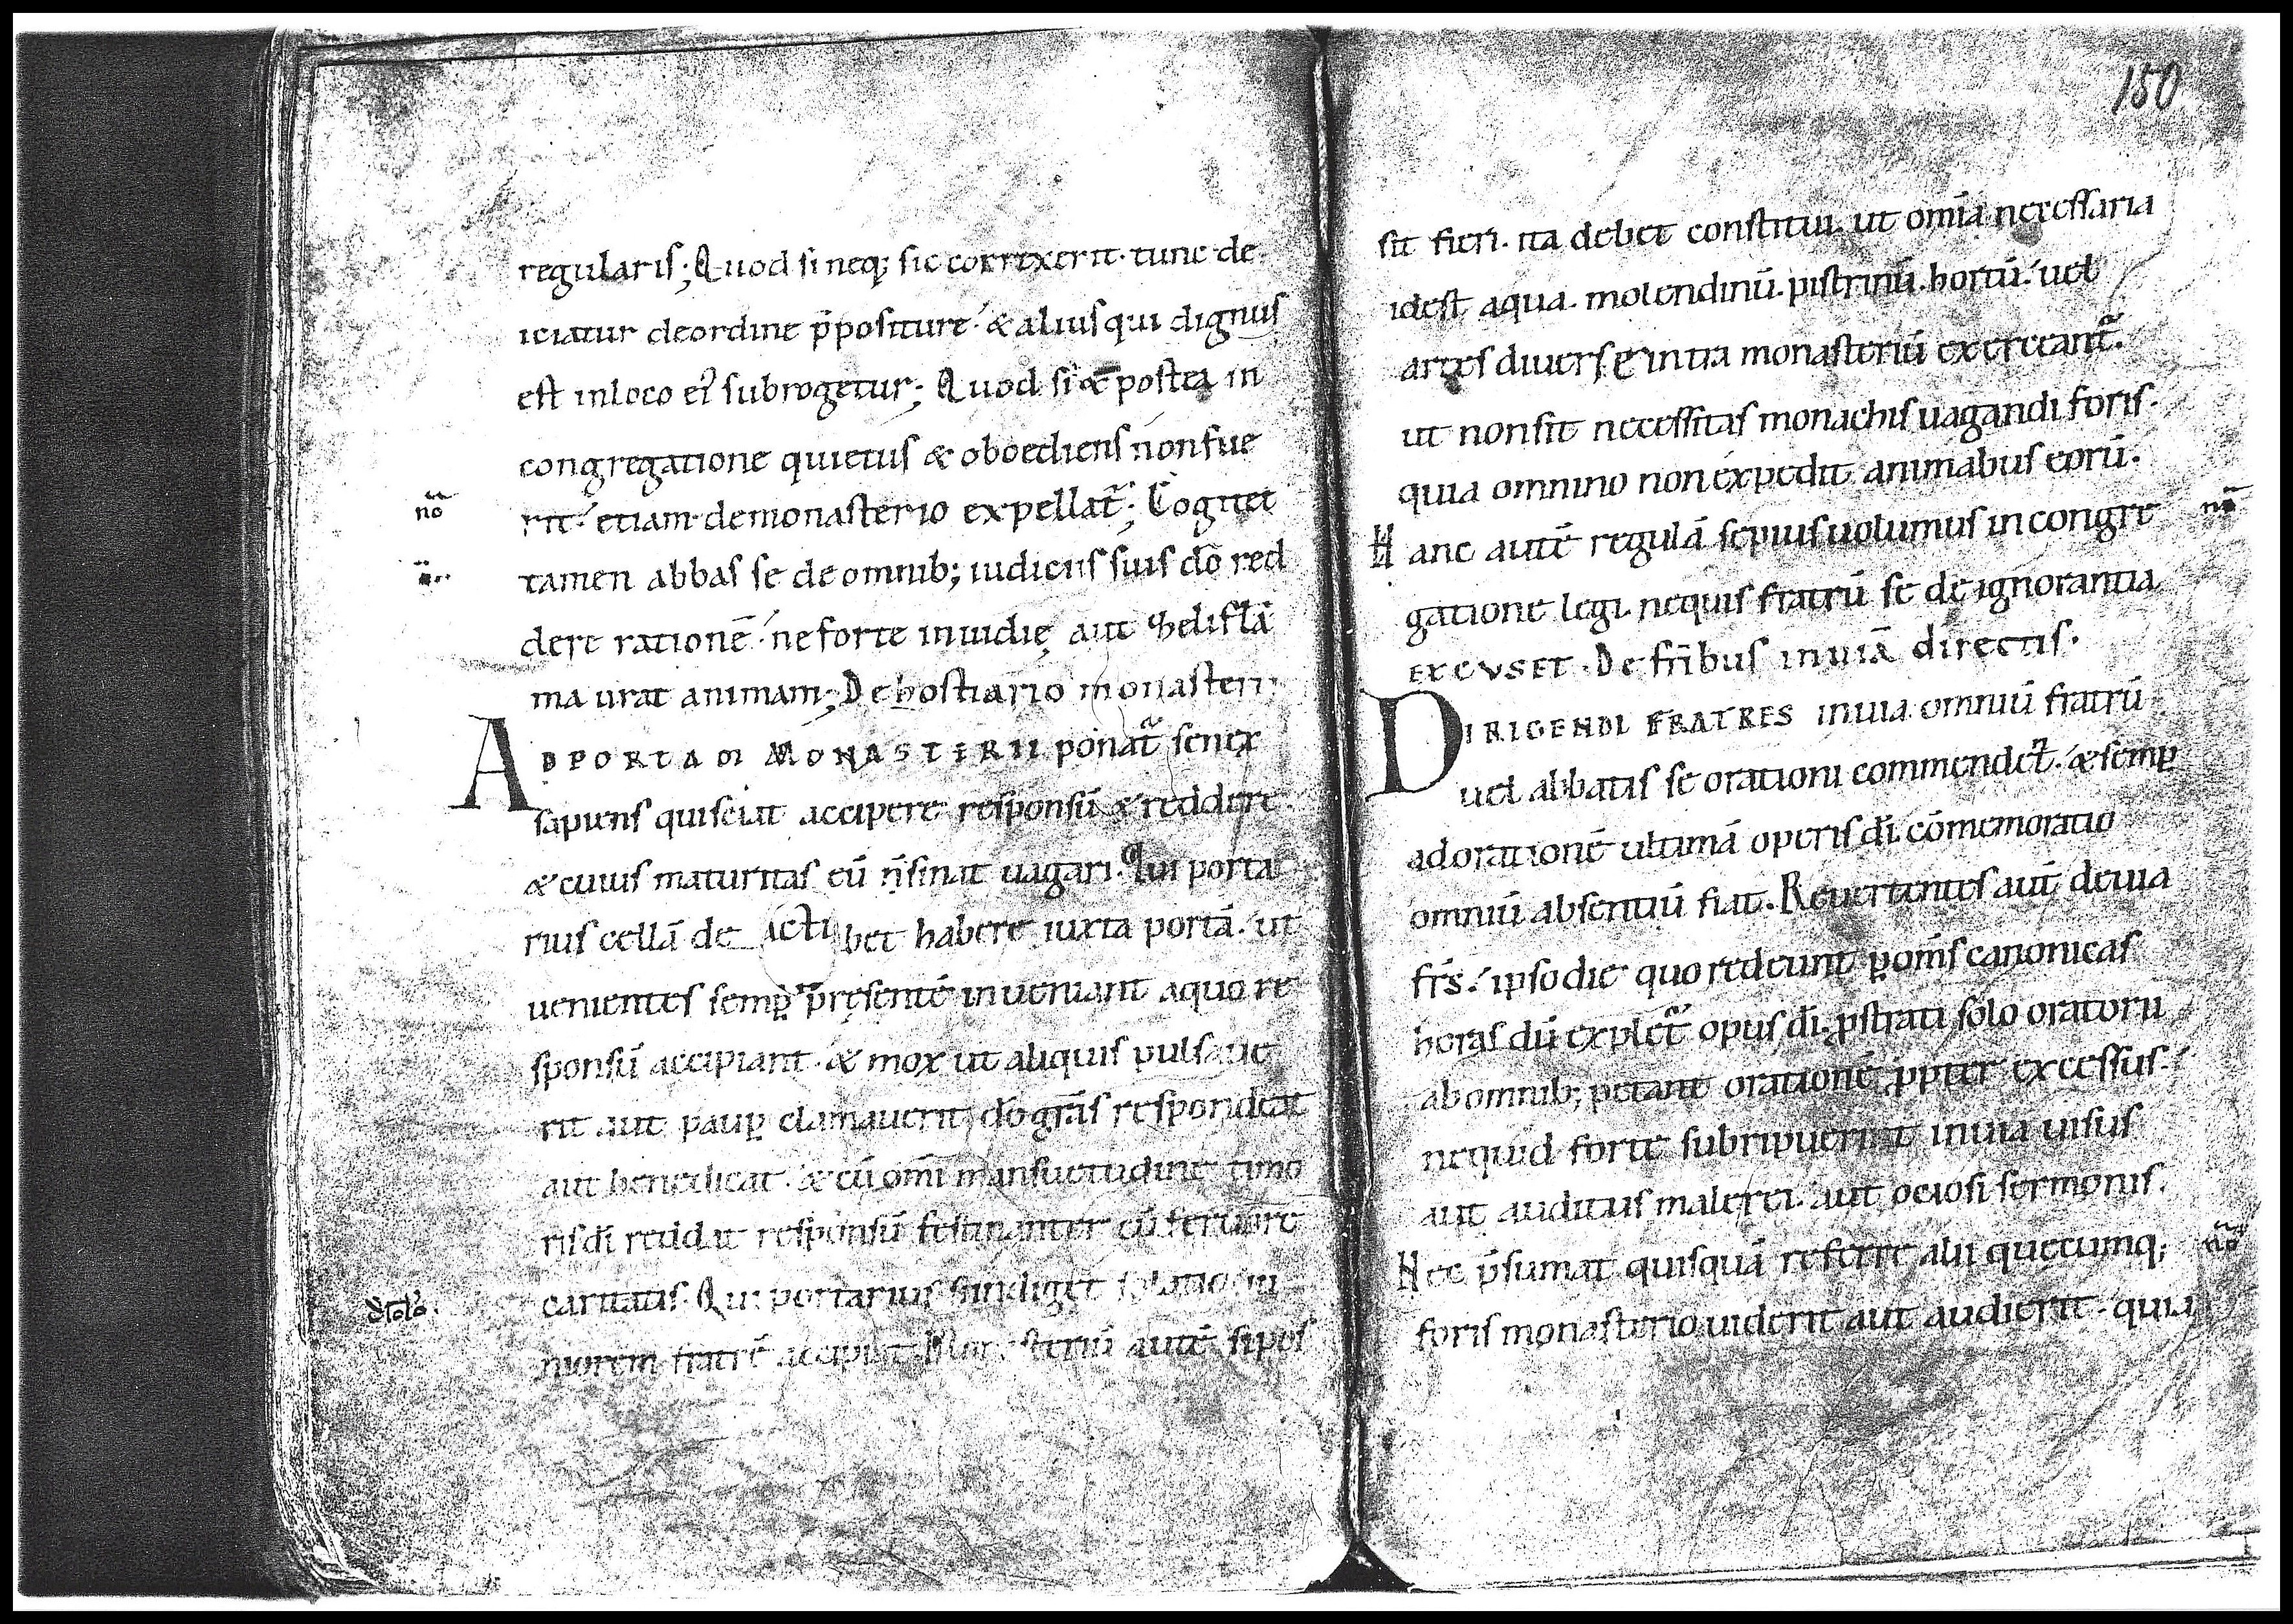 regularis; Quod si neq; sic correxerit. tunc de
iciatur deordine p̄positure. & alius qui dignus
est inloco ei᾽ subrogetur; Quod si & postea in
congregatione quietus & oboediens non fue
no
rit. etiam demonasterio expellat̃; Cogitet
tamen abbas se de omnib; iudiciis suis dō red
dere rationē. ne forte inuidię aut zeli flā
ma urat animam; De hostiario monasterii.
AD PORTAM MONASTERII ponat̃ senex
sapiens qui sciat accipere responsū & reddere.
& cuius maturitas eū n̄ sinat uagari. Qui porta
rius cellā de acti bet habere iuxta portā. ut
uenientes semp̱ pręsentē inueniant aquo re
sponsū accipiant. & mox ut aliquis pulsaue
rit aut paup̱ clamauerit, dō grās respondeat
aut benedicat. & cū omī mansuetudine timo
ris dī reddat responsū festinanter cū feruore
caritatis. Qui portarius si indiget solatio iu
niorem fratrē accipiat. Monasteriū autē si pos
150
sit fieri. ita debet constitui. ut omīa necessaria
idest aqua. molendinū. pistrinū. hortū. uel
artes diuersę intra monasteriū exerceant̃.
ut non sit necessitas monachis uagandi foris.
quia omnino non expedit animabus eorū.
Hanc autē regulā sepius uolumus in congre
no
gatione legi. nequis fratrū se de ignorantia
EXCVSET. De fr̄ibus inuiā directis.
DIRIGENDI FRATRES inuia omniū fratrū
uel abbatis se orationi commendet̃. & semp̱
adorationē ultimā operis dī. cōmemoratio
omniū absentiū fiat. Reuertentes aut̄ deuia
fr̄s. ipso die quo redeunt p̱ om̄s canonicas
horas dū explet̃ opus dī. pstrati solo oratorii
ab omnib; petant orationē ppter excessus.
nequid forte subripuerint inuia uisus
aut auditus malę rei. aut ociosi sermonis.
Nec p̄sumat quisquā referre alii quęcumq;
no
foris monasterio uiderit aut audierit. quia